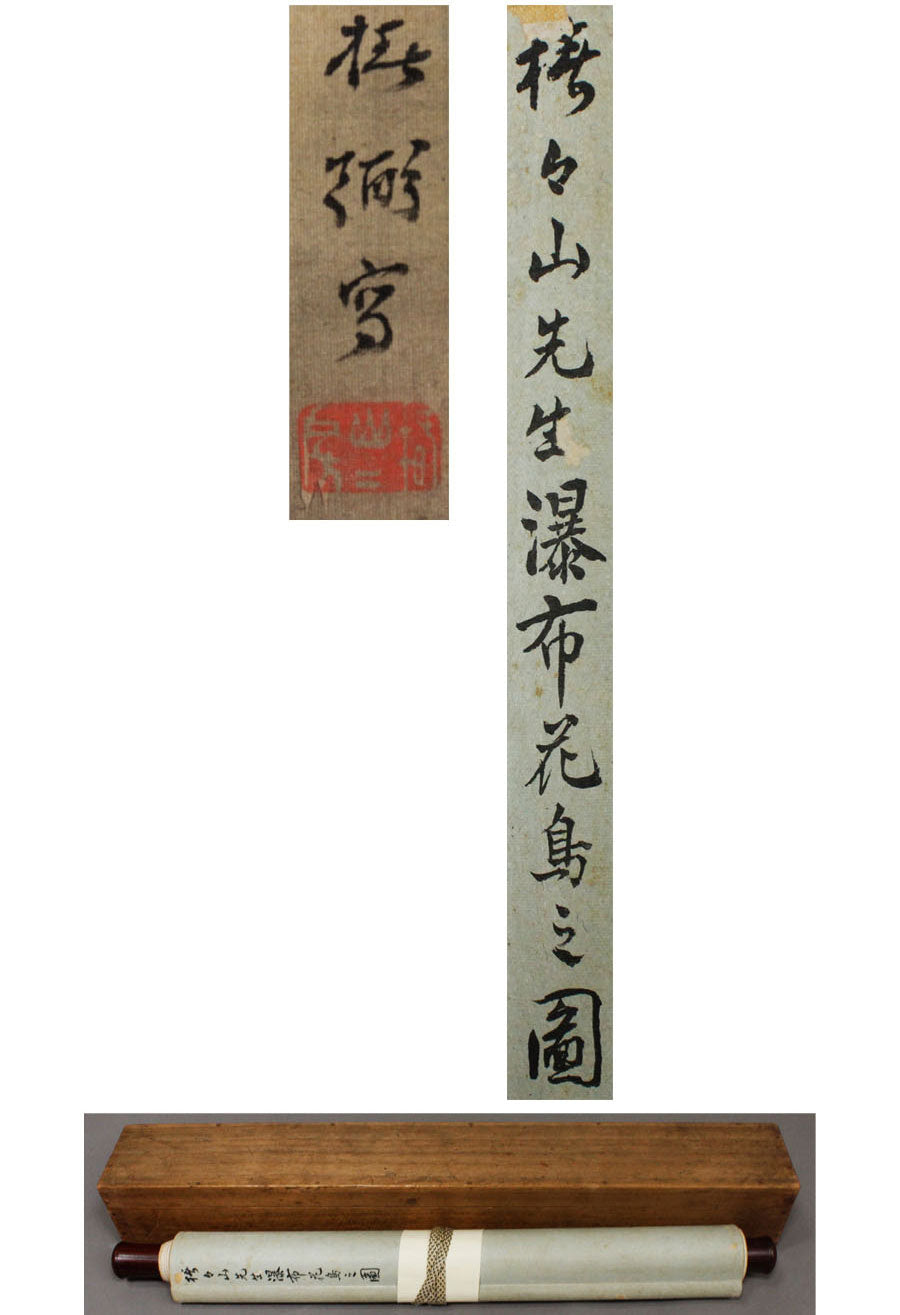 椿々山先生瀑布花鳥之圖
椿弼寫
椿々山先生瀑布花鳥之圖